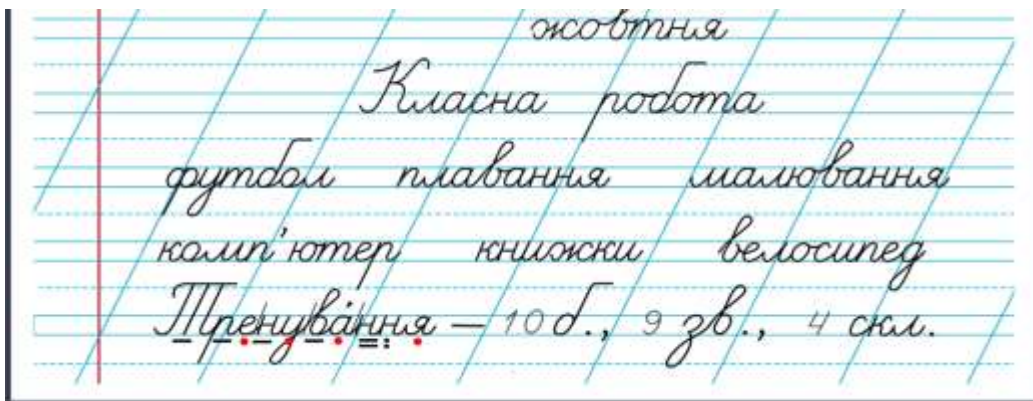 жовтня
Класна робота
футбол плавання малювання
комп'ютер книжки велосипед
Тренува́ння — 10 б., 9 зв., 4 скл.